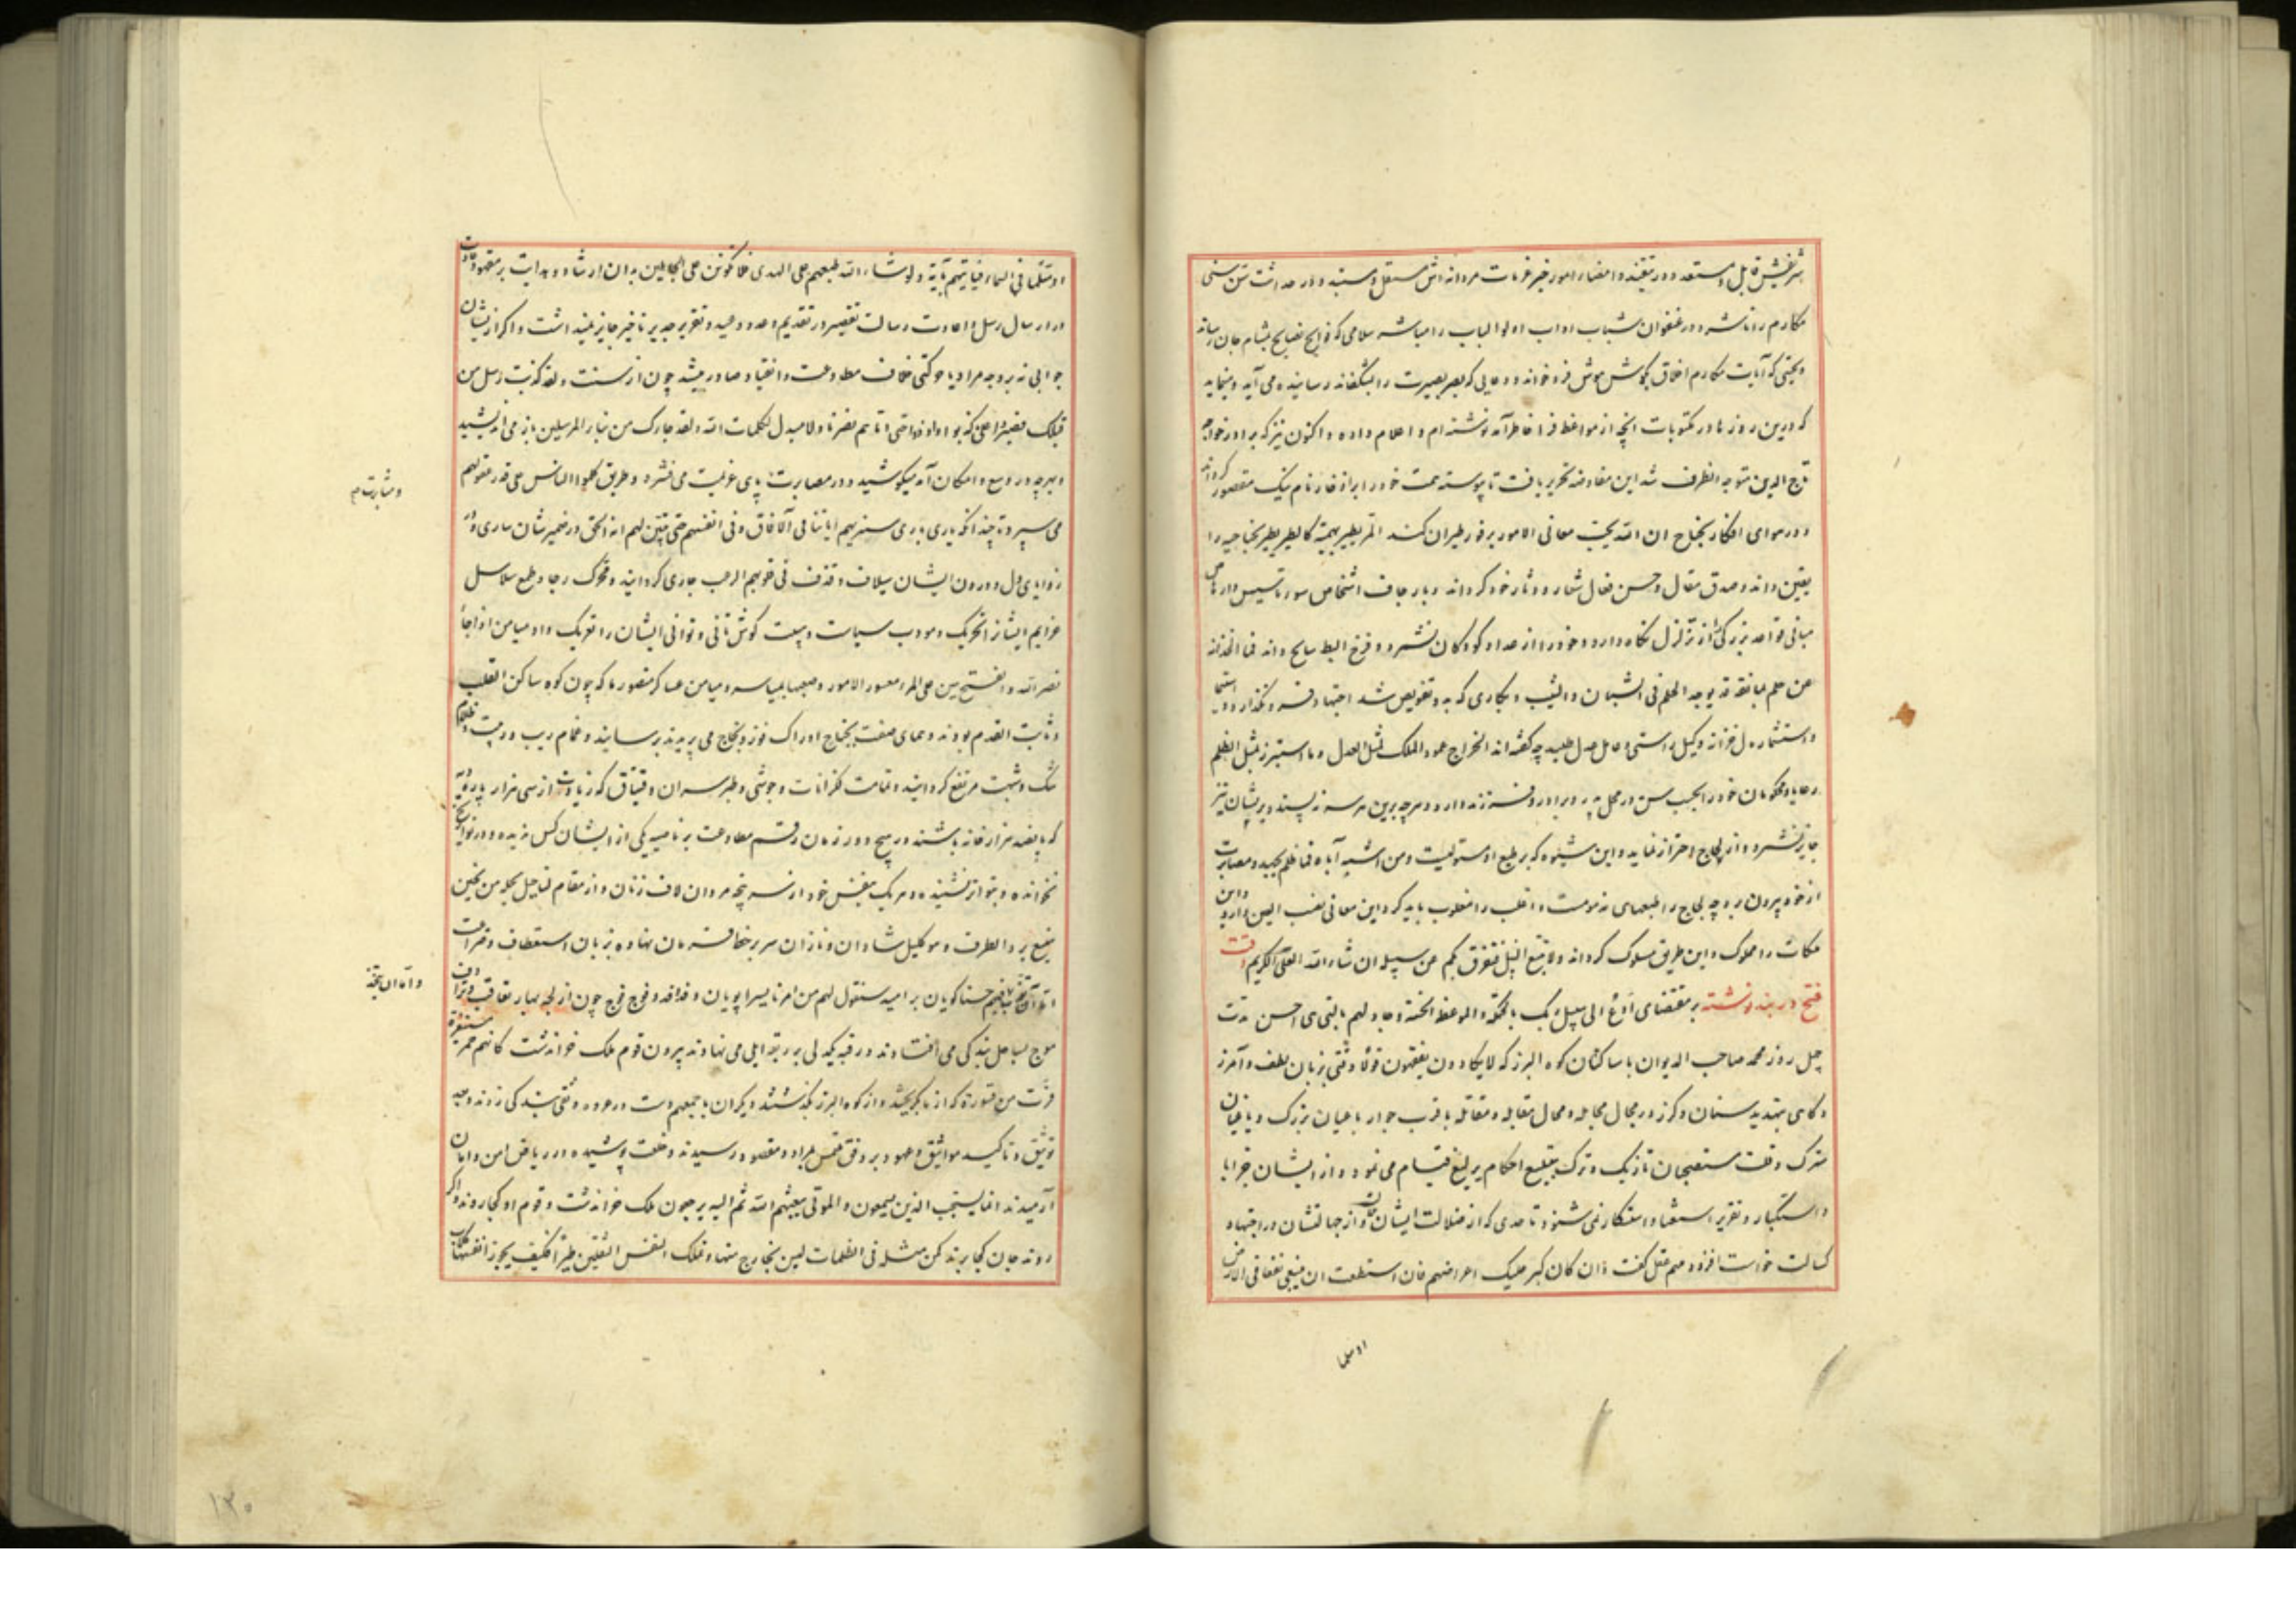 شریفش قابل و مستعد و در تنفیذ و امضاء امور خیر عزمات مردانه اش مستقل و مستبد و در حداثت سن سنی
مکارم را ناشر و در عنفوان شباب اداب اولوا الالباب را مباشر سلامی که فوایح نصایح بمشام جان رساند
و تحیتی که آیات مکارم اخلاق بگوش هوش فرو خواند و دعایی که بصر بصیرت را بشکفاند رسانیده می آید و مینماید
که درین روزها در مکتوبات انچه از مواعظ فرا خاطر آمد نوشته ام و اعلام داده و اکنون نیز که برادر خواجه
تاج الدین متوجه انطرف شد این مفاوضه تحریر یافت تا پیوسته همت خود را بر ادخار نام نیک مقصور گرداند
و در هوای افکار بجناح ان الله یحب معالی الامور بر فور طیران کند المرء یطیر بهمته کالطیر یطیر بجناحیه را
یقین داند و صدق مقال و حسن فعال شعار و دثار خود گرداند و بارجاف اشخاص سور تاسیس
مبانی قواعد بزرگی از تزلزل نگاه دارد و خود را از عداد کودکان نشمرد و فرخ البط سابح داند فما الحداثة
عن حلم بمانعة قد یوجد الحلم فی الشبان و الشیب و بکاری که بدو تفویض شد اجتهاد
و استثمار دل خزانه وکیل راستی و عامل عدل طلبد چه گفته اند الخراج عمود الملک بمثل العدل و ما استنزر بمثل الظلم
رعایا و محکومان خود را بحسب سن در محل پدر و برادر و فرزند دارد و هرچه برین هر سه نپسندد بر ایشان نیز
جایز نشمرد و از لجاج احتراز نماید و این شیوه که بر طبع او مستولیست و من اشبه آباه فما ظلم
از خود بیرون برد چه لجاج را طبعهای مذمومست و اغلب را مغلوب باید کرد و این معانی نصب العین دارد و این
مکات را مملوک و این طریق مسلوک گرداند و لا تتبعوا السبل فتفرق بکم عن سبیله ان شاء الله العلی الکریم وقت
فتح دربند نوشته بر مقتضای ادع الی سبیل ربک بالحکمة و الموعظة الحسنة و جادلهم بالتی هی احسن مدت
چهل روز محمد صاحب الدیوان با ساکنان کوه البرز که لا یکادون یفقهون قولا وقتی بزبان لطف و آمرز
و گاهی بتهدید سنان و گرز در مجال مجادله و محال مقابله و مقاتله با قرب جوار باغیان بزرگ و یاغیان
سترک وقلت مستصحبان تازیک و ترک بتبلیغ احکام یرلیغ قیام می نمود و از ایشان جز ابا
و استکبار و تقریر استبعاد و استنکار نمی شنود تا حدی که از ضلالت ایشان و از جهالتشان در اجتهاد
کسالت خواست افزود ملهم عقل گفت و ان کان کبر علیک اعراضهم فان استطعت ان تبتغی نفقا فی الارض
او سلما
او سلما فی السماء فتاتیهم بآیة و لو شاء الله لجمعهم علی الهدی فلا تکونن من الجاهلین بدان ارشاد و هدایت بر مقصود
در ارسال رسل و اعادت رسالت تقصیر و در تقدیم وعد و وعید و تقریر جد بر تاخیر جایز نمیداشت و اگر از ایشان
جوابی نه بر وجه مراد یا حرکتی خلاف مطاوعت و انقیاد صادر میشد چون از سنت و لقد کذبت رسل من
قبلک فصبروا علی ما کذبوا و اوذوا حتی اتاهم نصرنا و لا مبدل لکلمات الله و لقد جاءک من نباء المرسلین باز می اندیشید
و بهرچه در وسع و امکان آمد میکوشید و در مصابرت پای عزیمت می فشرد و طریق کلموا الناس علی قدر عقولهم
و مثابرت
می سپرد تا چندانکه باری باری سنریهم ایاتنا فی الآفاق و فی انفسهم حتی یتبین لهم انه الحق در ضمیرشان ساری
زوایای دل و درون ایشان سیلاف و قذف فی قلوبهم الرعب جاری گردانید و محرک رجا و طمع سلاسل
عزایم ایشانرا تحریک و مودب سیاست و هیبت گوش تانی و توانی ایشان را تعریک داد میامن اذا جاء
نصر الله و الفتح بین علی المرء معسور الامور و صعبها بمیاسر و میامن عساکر منصور ما که چون کوه ساکن القلب
و ثابت القدم بودند و همای صفت بجناح ادراک فوز و نجاح می پریدند برسانید و غمام ریب و ریبت و ظلام
شک و شبهت مرتفع گردانید و تمامت لکزانات و جوشی و طبرسران و قیتاق که زیادت از سی هزار پاره دیه
که پانصد هزار خانه باشند در هیچ دور زمان رقم مطاوعت بر ناصیه یکی از ایشان کس ندیده و در تواریخ
نخوانده و بتواتر نشنیده و هر یک بنفس خود از سر پنجه مردان لاف زنان و از مقام
بر دالطرف و موکیل شادان و نازان سر بر خط فرمان نهاده زبان استعطاف و ضراعت
و اه ان یحقه
حسنا گویان بر امید سنقول لهم من امرنا یسرا پویان و فرافد و فوج فوج چون از لجه بحار تعاقب و ترادف
موج بساحل بندگی می افتادند و رقبه یکدلی بر ربقه ایلی می نهادند بیرون قوم ملک خواندشت کانهم حمر مستنفرة
فرت من قسورة که از ما بگریختند و از کوه البرز بگذشتند دیگران باجمعهم دست در عروه وثقی بندگی زدند و بعد
توثیق و تاکید مواثیق و عهود بر وفق ملتمس بمراد و مقصود رسیدند و خلعت پوشیده در ریاض امن و امان
آرمیدند انما یستجیب الذین یسمعون و الموتی یبعثهم الله ثم الیه یرجعون ملک خواندشت و قوم او کجا روند و اگر
روند جان کجا برند کمن مثله فی الظلمات لیس بخارج منها و تملک النفس الثقلین طیرا فکیف یحوز انفسها
۱۲۰